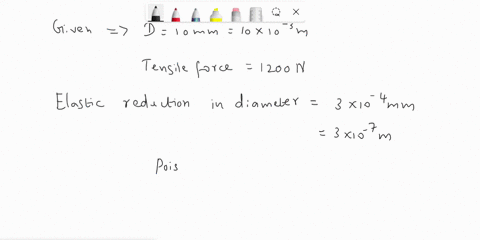 Given => D = 10mm = 10 × 10⁻³ m
Tensile force = 1200 N
Elastic reduction in diameter = 3 × 10⁻⁴ mm
= 3 × 10⁻⁷ m
Pois